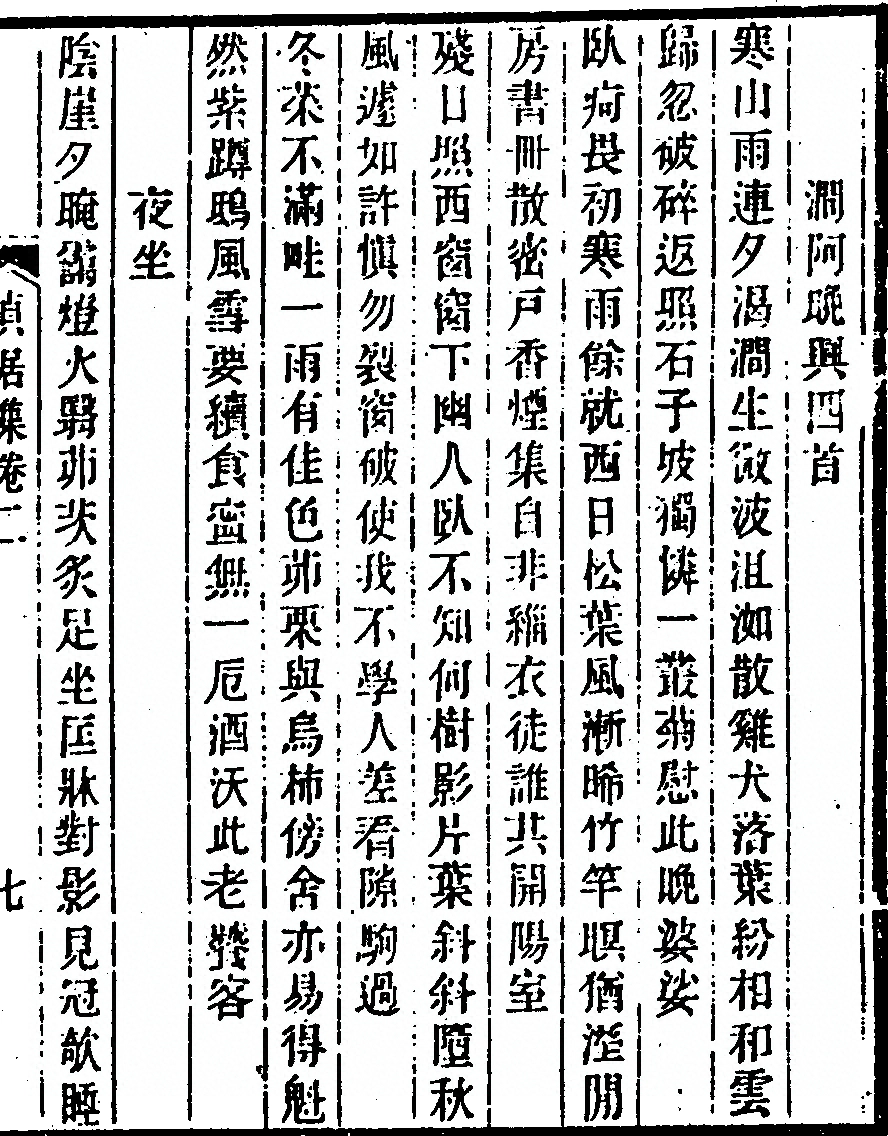 澗阿晚興四首
寒山雨連夕渴澗生微波沮洳散雞犬落葉紛相和雲
歸忽破碎返照石子坡獨憐一叢菊慰此晚婆娑
臥痾畏初寒雨餘就西日松葉風漸晞竹竿暝猶溼閒
房書冊散密戸香煙集自非緇衣徒誰共開陽室
殘日照西窗窗下幽人臥不知何樹影片葉斜斜墮秋
風遽如許愼勿裂窗破使我不學人差看隙駒過
冬菜不滿畦一雨有佳色茆栗與烏柿傍舍亦易得魁
然紫蹲鴟風雪要續食蜜無一卮酒沃此老發客
夜坐
陰崖夕晻靄燈火翳茆茨炙足坐匡牀對影見冠欹睡
貞居集卷二
七